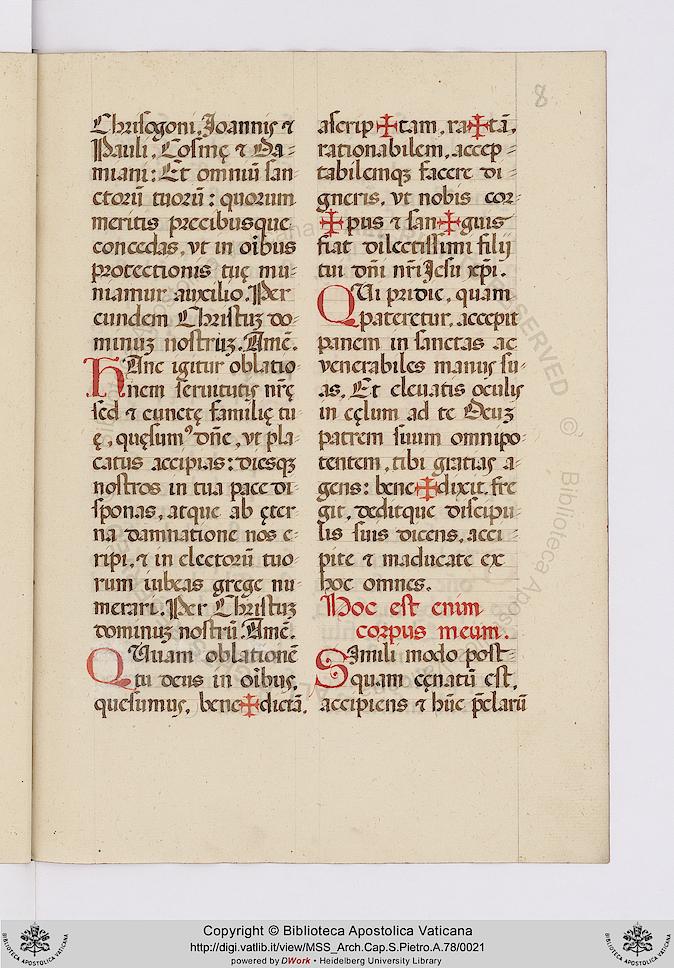 8
Chrisogoni, Joannis ⁊
Pauli, Cosmę ⁊ Da-
miani: Et omniũ san
ctorũ tuorũ: quorum
meritis precibusque
concedas, vt in oĩbus
protectionis tuę mu-
niamur auxilio. Per
eundem Christuʒ do-
minuʒ nostruʒ. Amẽ.
HAnc igitur oblatio-
nem seruitutis nr̃ę
sed ⁊ cunctę familię tu
ę, quęsumꝰ dñe, vt pla-
catus accipias: diesqʒ
nostros in tua pace di-
sponas, atque ab ęter
na damnatione nos e-
ripi, ⁊ in electorũ tuo-
rum iubeas grege nu-
merari. Per Christuʒ
dominuʒ nostrũ. Amẽ.
QUuam oblationẽ
tu deus in oĩbus,
quesumus, bene✠dictã,
ascrip✠tam, ra✠tã,
rationabilem, accep-
tabilemqʒ facere di-
gneris, vt nobis cor-
✠pus ⁊ san✠guis
fiat dilectissimi filij
tui dñi nr̃i Jesu xp̃i.
QUi pridie, quam
pateretur, accepit
panem in sanctas ac
venerabiles manus su-
as, Et eleuatis oculis
in cęlum ad te Deuʒ
patrem suum omnipo-
tentem, tibi gratias a-
gens: bene✠dixit, fre
git, deditque discipu-
lis suis dicens, acci
pite ⁊ mãducate ex
hoc omnes.
Hoc est enim
corpus meum.
SImili modo post-
quam cęnatũ est,
accipiens ⁊ hũc pr̃clarũ
Copyright © Biblioteca Apostolica Vaticana
http://digi.vatlib.it/view/MSS_Arch.Cap.S.Pietro.A.78/0021
powered by DWork • Heidelberg University Library
BIBLIOTECA APOSTOLICA VATICANA
BIBLIOTECA APOSTOLICA VATICANA